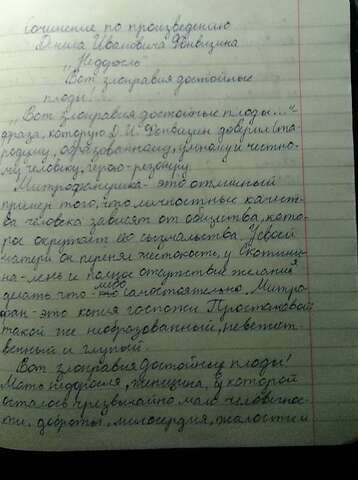 Сочинение по произведению
Дениса Ивановича Фонвизина
"Недоросль"
"Вот злонравия достойные
плоды!"
"Вот злонравия достойные плоды..." -
фраза, которую Д. И. Фонвизин доверил Ста-
родуму, образованному, умному и честно-
му человеку, герою-резонёру.
Митрофанушка - это отличный
пример того, что личностные качест-
ва человека зависят от общества, кото-
рое окружает его сызмальства. У своей
матери он перенял жестокость, у Скотини-
на - лень и полное отсутствие желания
делать что-либо самостоятельно. Митро-
фан - это копия госпожи Простаковой
такой же необразованный, невежест-
венный и глупый.
Вот злонравия достойные плоды!
Мать недоросля, женщина, в которой
осталось чрезвычайно мало человечнос-
ти, доброты, милосердия, жалости и